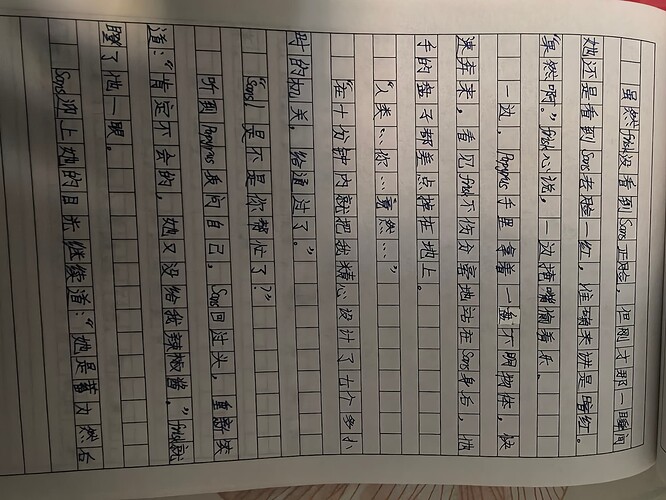 虽然frisk没看到Sans正脸，但刚才那一瞬间
她还是看到Sans老脸一红，准确来讲是暗红。
“果然啊。”frisk心说，一边捂嘴偷着乐。
一边，Papyrus手里拿着一盘不明物体，快
速奔来，看见frisk不伤分毫地站在Sans身后，
手的盘子都差点掉在地上。
“人类…你…竟然…”
“在十分钟内就把我精心设计了七个多小
时的机关，给通过了。”
“Sans！是不是你帮忙了？”
听到Papyrus质问自己，Sans回过头，重新
道：“肯定不会的，她又没给我辣椒酱。”frisk就
瞪了他一眼。
Sans迎上她的目光继续道：“她是蓄力然后